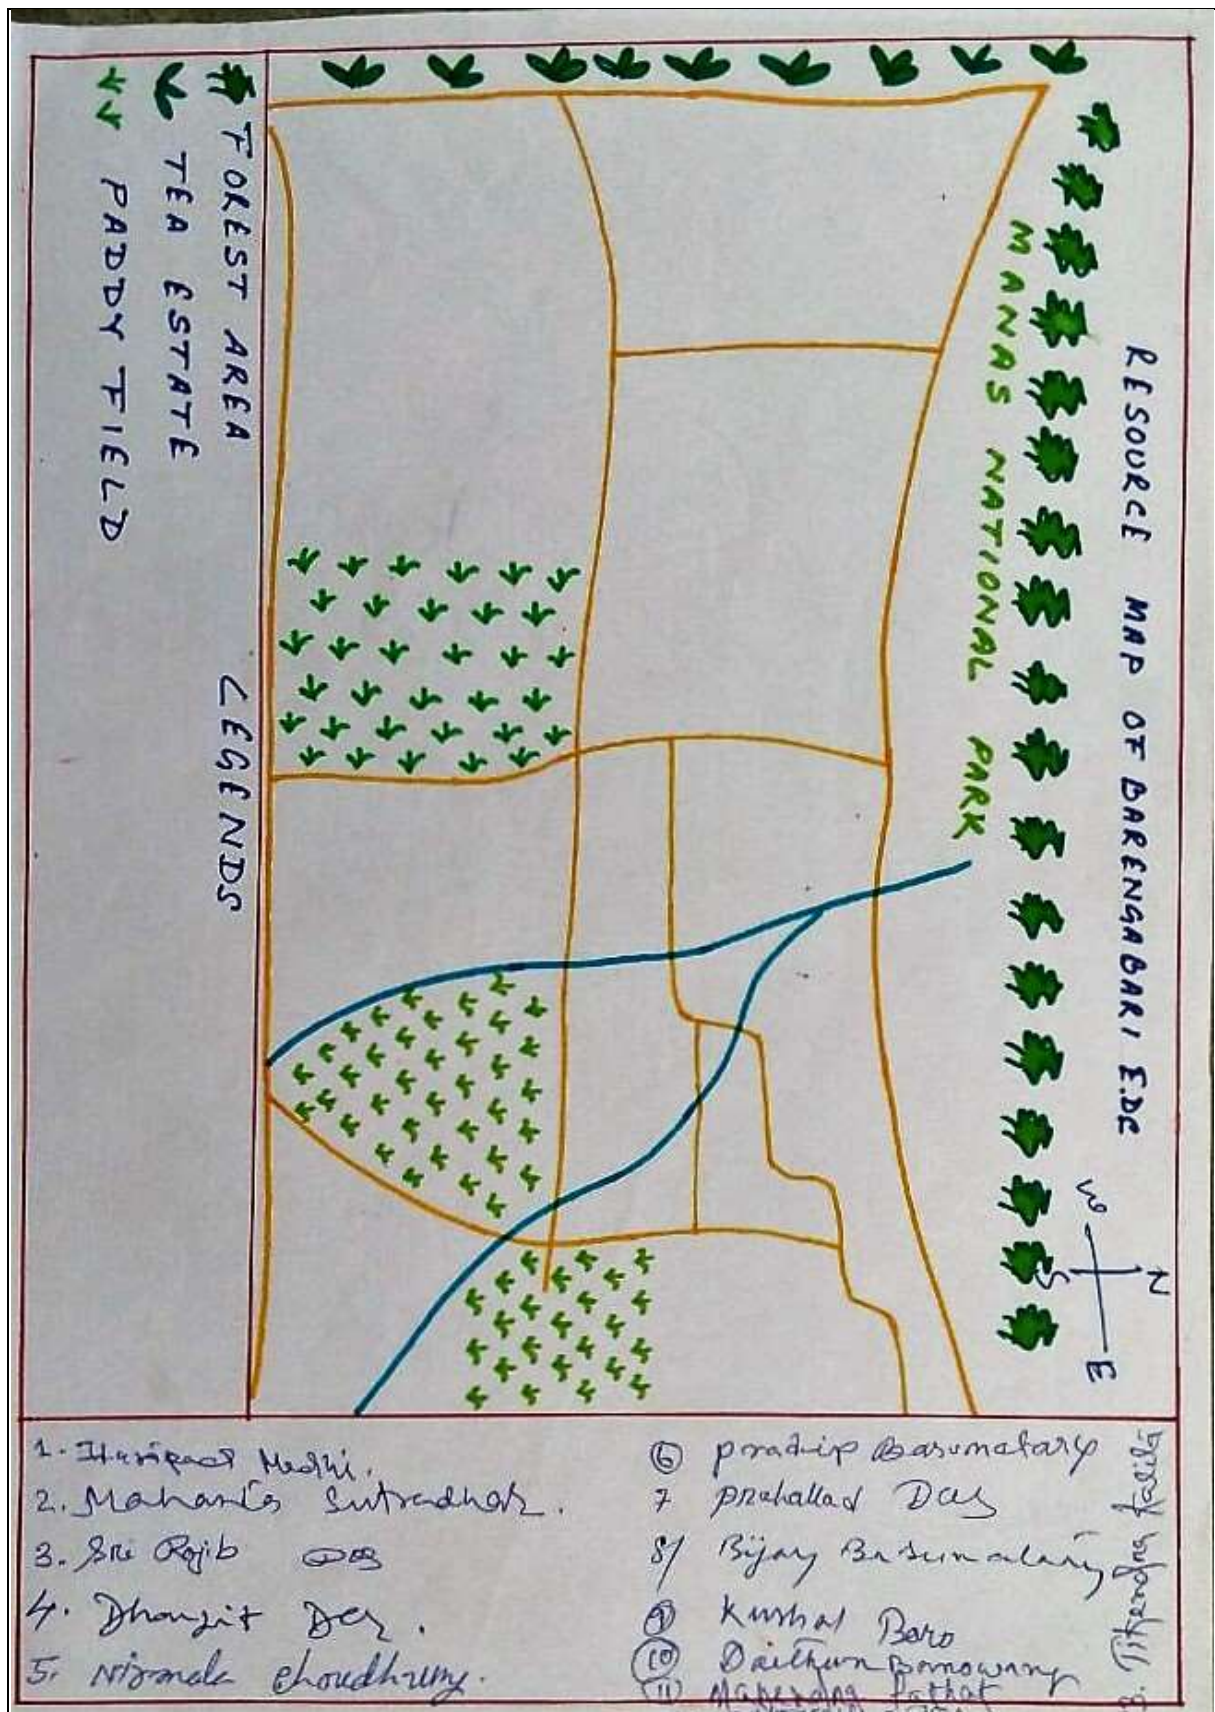 RESOURCE MAP OF BARENGABARI E.DC
N
W
E
S
MANAS NATIONAL PARK
LEGENDS
FOREST AREA
TEA ESTATE
PADDY FIELD
1. Haripad Medhi.
2. Mahanta Sutradhar.
3. Sri Rajib Das
4. Dhanjit Das.
5. Nirmala Choudhury.
6 Pradip Basumatary
7 Prahallad Das
8/ Bijay Basumatary
9 Kushal Boro
10
11
3. Kalita